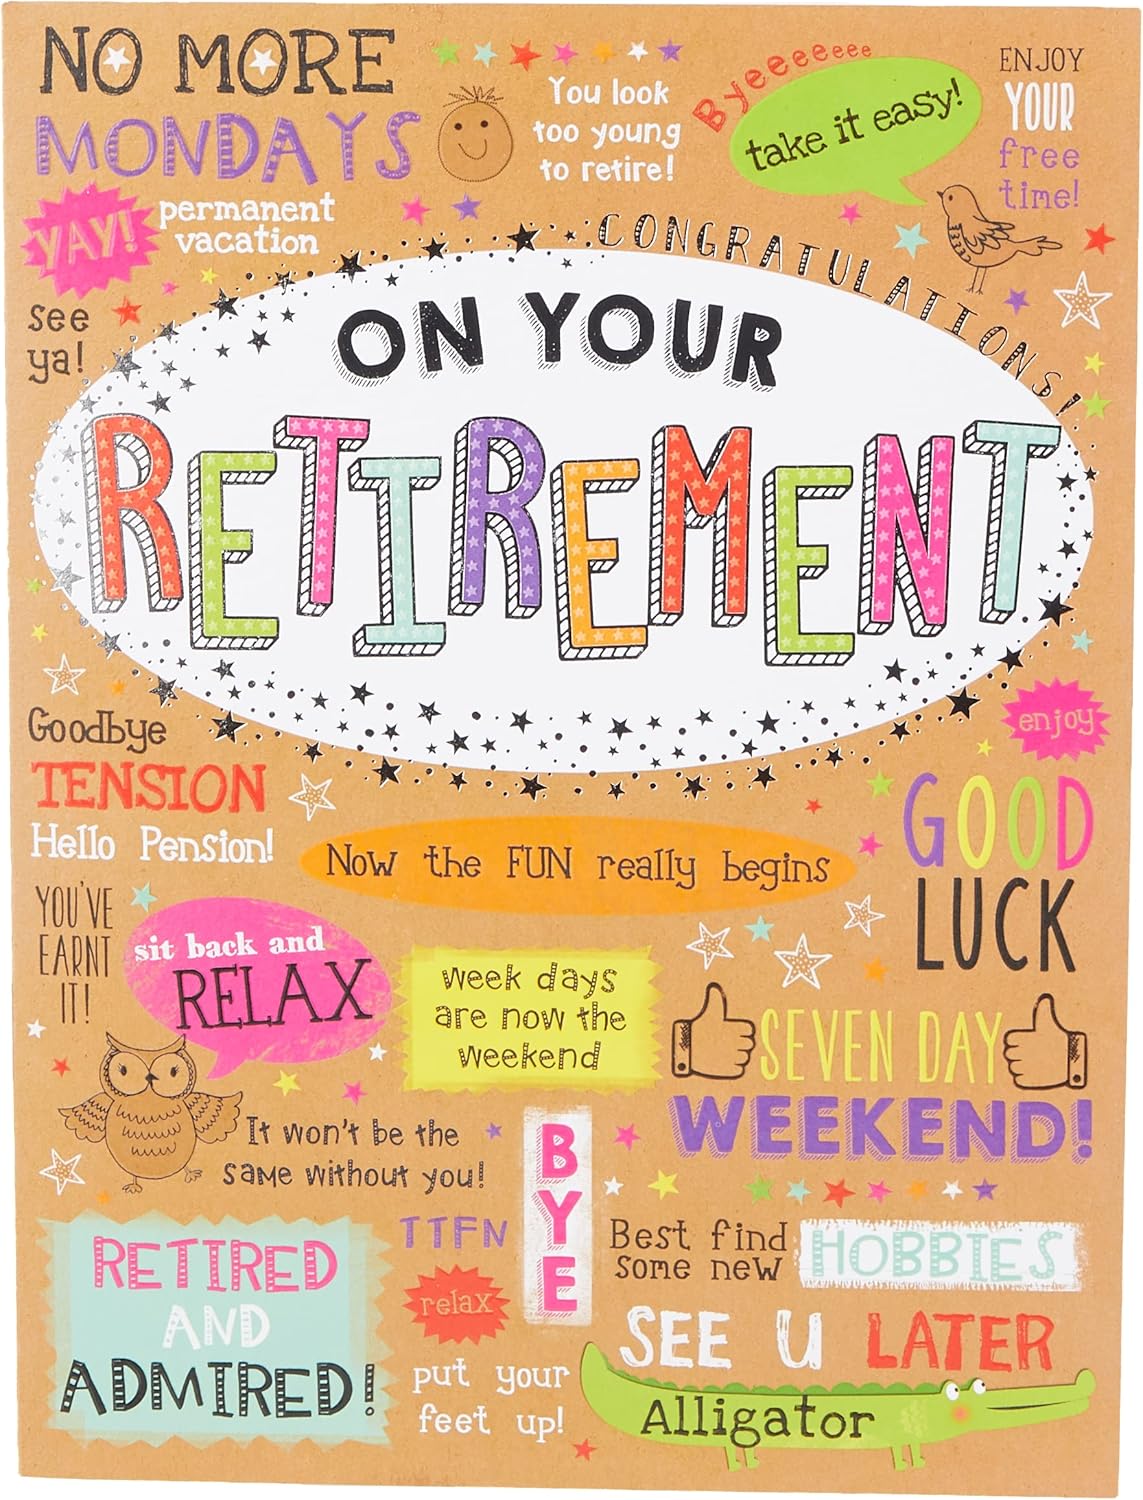 NO MORE
MONDAYS
You look
too young
to retire!
Byeeeeeee
take it easy!
ENJOY
YOUR
free
time!
YAY!
permanent
vacation
see
ya!
CONGRATULATIONS!
ON YOUR
RETIREMENT
Goodbye
TENSION
Hello Pension!
enjoy
GOOD
LUCK
Now the FUN really begins
YOU'VE
EARNT
IT!
sit back and
RELAX
Week days
are now the
weekend
SEVEN DAY
WEEKEND!
It won't be the
same without you!
BYE
TTFN
relax
put your
feet up!
Best find
some new
HOBBIES
RETIRED
AND
ADMIRED!
SEE U LATER
Alligator